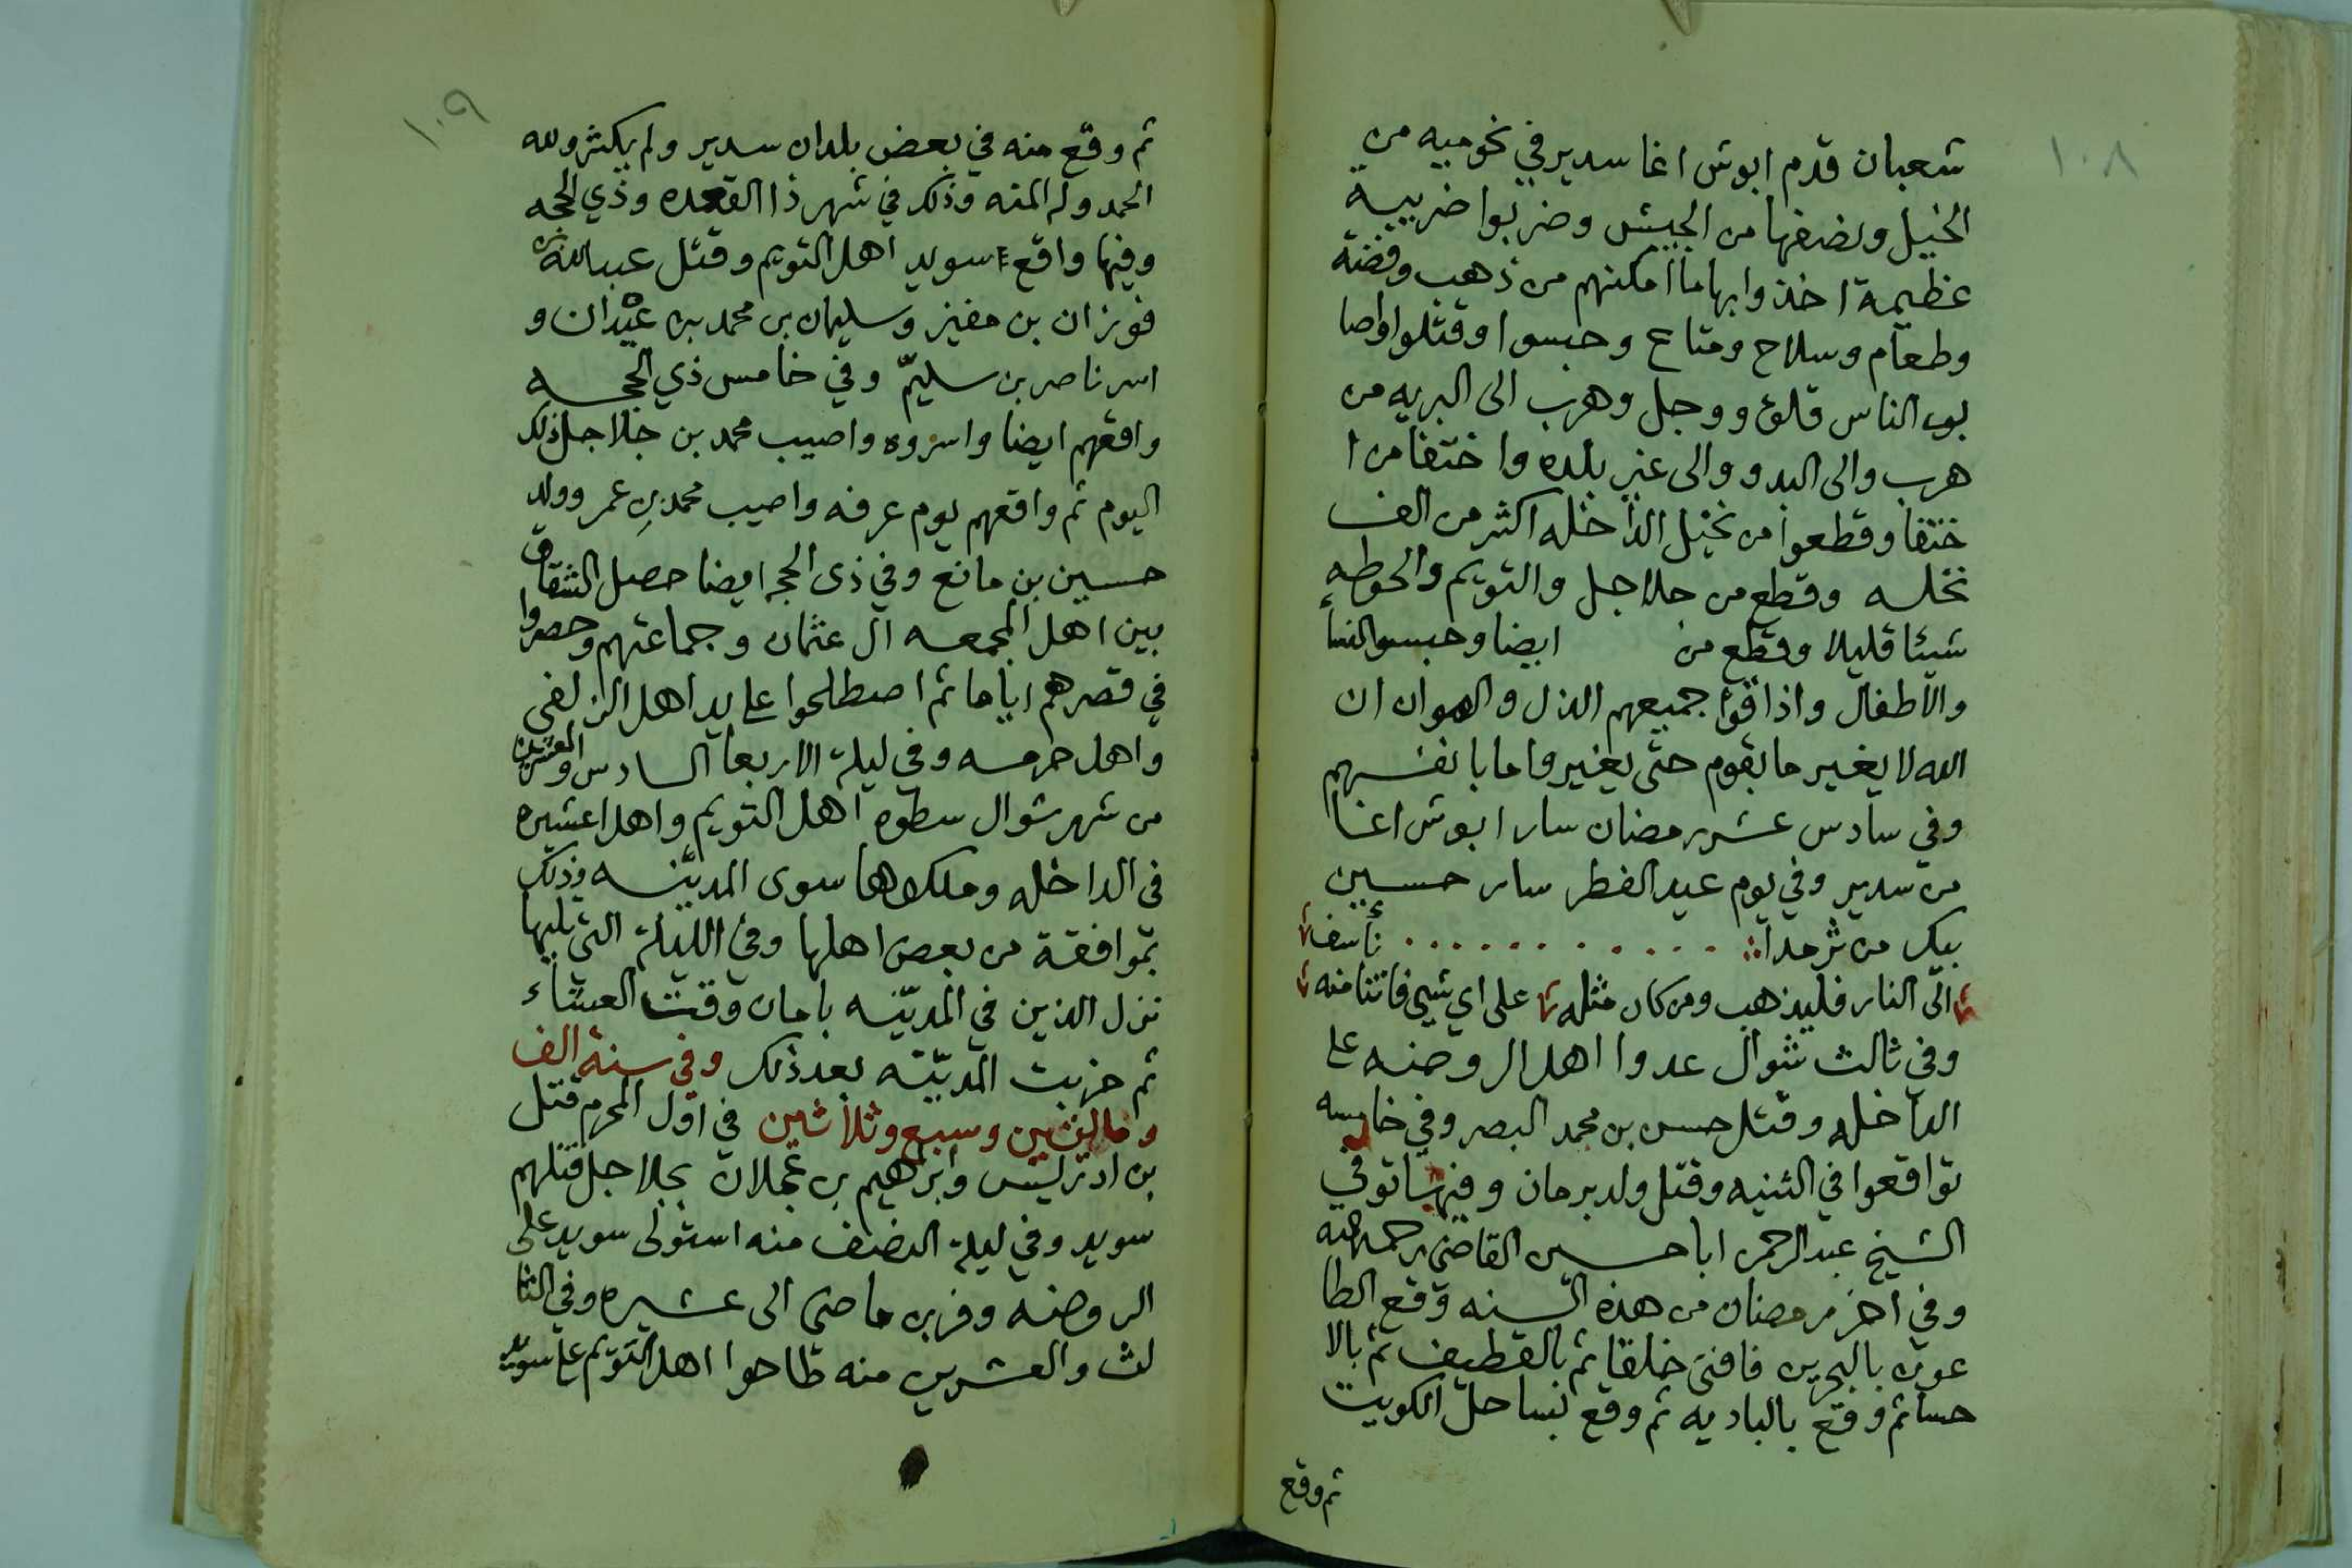 ١٠٨
شعبان قدم ابوش اغا سدير في نحو ميه من
الخيل ونصفها من الجيش وضربوا ضريبة
عظيمة اخذوا بها ما امكنهم من ذهب وفضة
وطعام وسلاح ومتاع وحبسوا وقتلوا واصا
بوب الناس قلق ووجل وهرب الى البريه من
هرب والى البدو والى غير بلده واختفا من ا
ختفا وقطعوا من نخيل الداخله اكثر من الف
نخله وقطع من جلاجل والتويم والحوطه
شيئا قليلا وقطع من ايضا وحبسوا النساء
والاطفال واذاقوا جميعهم الذل والهوان ان
الله لا يغير ما بقوم حتى يغيروا ما بانفسهم
وفي سادس عشر رمضان سار ابوش اغا
من سدير وفي يوم عيد الفطر سار حسين
بيك من ثرمدا ............ تأسف
الى النار فليذهب ومن كان مثله على اي شيئ فاتنا منه
وفي ثالث شوال عدوا اهل الروضه على
الداخله وقتل حسن بن محمد البصر وفي خامسه
تواقعوا في الثنيه وقتل ولد برمان وفيها توفي
الشيخ عبد الرحمن ابا حسين القاضي رحمه الله
وفي اخر رمضان من هذه السنه وقع الطا
عون بالبحرين فافنى خلقا ثم بالقطيف ثم بالا
حسا ثم وقع بالباديه ثم وقع بساحل الكويت
ثم وقع
١٠٩
ثم وقع منه في بعض بلدان سدير ولم يكثر ولله
الحمد وله المنه وذلك في شهر ذا القعده وذي الحجه
وفيها واقع سويد اهل التويم وقتل عبد الله بن
فوزان بن مغيز وسليمان بن محمد بن عيدان و
اسر ناصر بن سليم وفي خامس ذي الحجه
واقعهم ايضا واسروه واصيب محمد بن جلاجل ذلك
اليوم ثم واقعهم يوم عرفه واصيب محمد بن عمر وولد
حسين بن مانع وفي ذى الحجه ايضا حصل الشقاق
بين اهل المجمعه ال عثمان وجماعتهم وحصروا
في قصرهم اياما ثم اصطلحوا على يد اهل الزلفى
واهل حرمه وفي ليلة الاربعا السادس والعشرين
من شهر شوال سطوه اهل التويم واهل عشيره
فى الداخله وملكوها سوى المديّنه وذلك
بموافقة من بعض اهلها وفي الليلة التي تليها
نزل الذين في المديّنه بامان وقت العشاء
ثم خربت المديّنه بعد ذلك وفي سنة الف
ومائتين وسبع وثلاثين في اول المحرم قتل
بن ادريس وابرهيم بن عجلان بجلاجل قتلهم
سويد وفي ليلة النصف منه استولى سويد على
الروضه وفر بن ماضى الى عشيره وفي الثا
لث والعشرين منه طاحوا اهل التويم على سويد